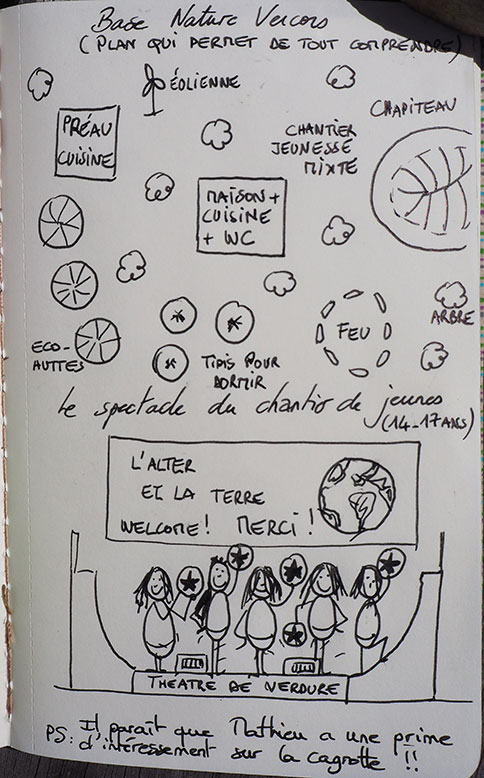 Base Nature Vercors
(PLAN QUI PERMET DE TOUT COMPRENDRE)
ÉOLIENNE
PRÉAU
CUISINE
CHANTIER
JEUNESSE
MIXTE
CHAPITEAU
MAISON +
CUISINE
+ WC
FEU
ARBRE
ECO-
HUTTES
TIPIS POUR
DORMIR
Le spectacle du chantier de jeunes
(14-17 ANS)
L'ALTER
ET LA TERRE
WELCOME! MERCI!
THEATRE DE VERDURE
PS: Il paraît que Mathieu a une prime
d'intéressement sur la cagnotte !!